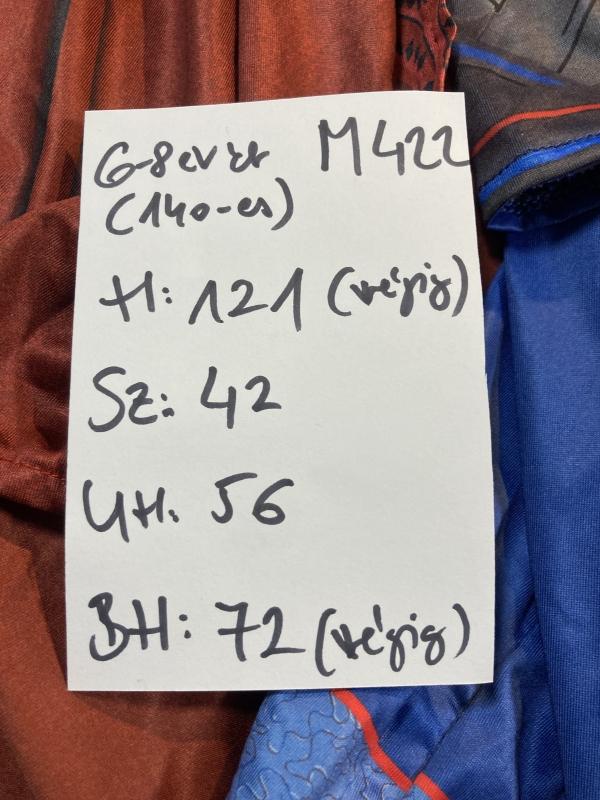 6-8 évest M422
(140-es)
H: 121 (végig)
Sz: 42
UH: 56
BH: 72 (végig)